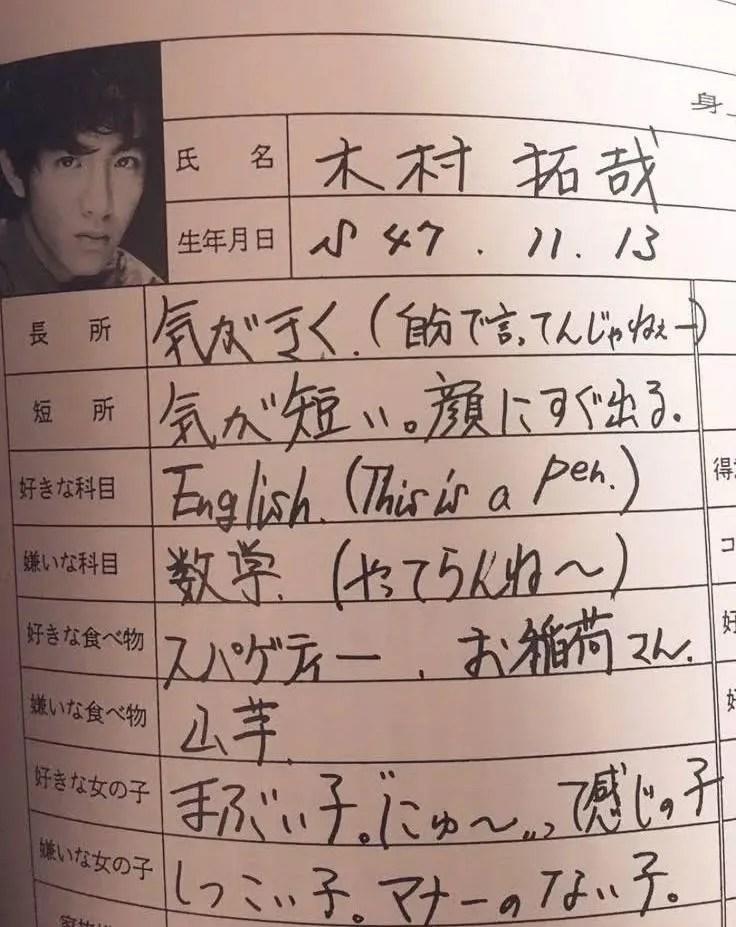 身上
氏　名 木村 拓哉
生年月日 S 47. 11. 13
長　所 気がきく.(自分で言ってんじゃねぇー)
短　所 気が短い。顔にすぐ出る。
好きな科目 English. (This is a pen.)
得意
嫌いな科目 数学. (やってらんね〜)
コ
好きな食べ物 スパゲティー . お稲荷さん.
好
嫌いな食べ物 山芋.
好
好きな女の子 まぶい子。にゅ〜..って感じの子
嫌いな女の子 しつこい子。マナーのない子。